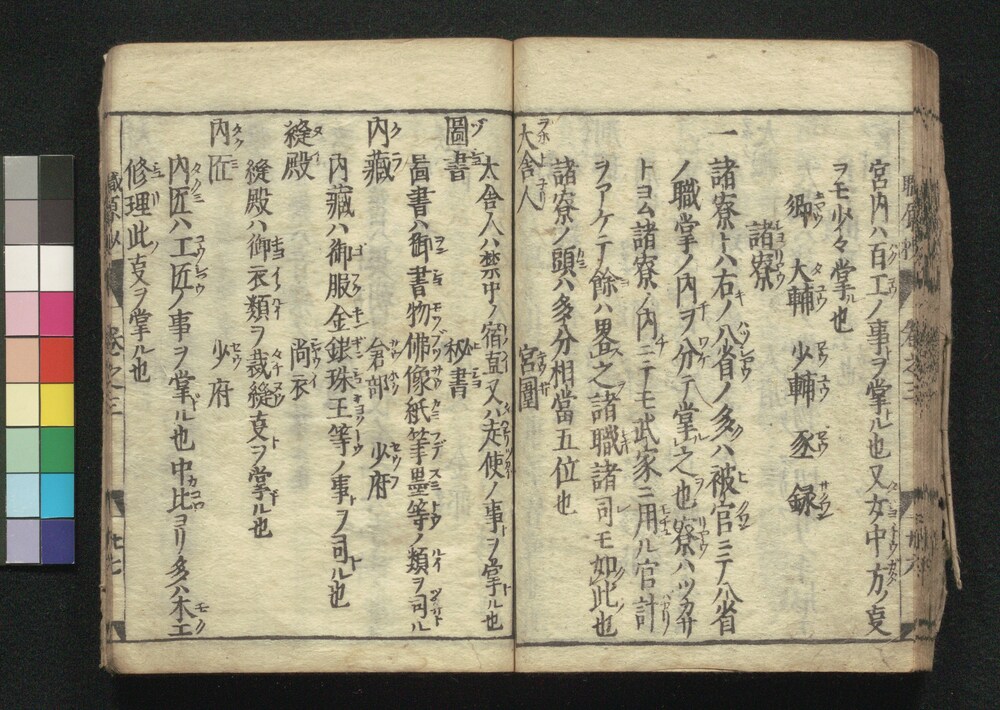 宮内ハ百工ノ事ヲ掌ル也又女中方ノ叓
ヲモ少々掌ル也
卿 大輔 少輔 丞 録
諸寮
一 諸寮トハ右ノ八省ノ多ハ被官ニテ八省
ノ職掌ノ内ヲ分テ掌ルレ之也寮ハツカサ
トヨム諸寮ノ内ニテモ武家ニ用ル官計
ヲアケテ餘ハ畧ス之諸職諸司モ如此也
諸寮ノ頭ハ多分相當五位也
大舎人 宮闈
大舎人ハ禁中ノ宿直又ハ走使ノ事ヲ掌ル也
圖書 秘書
圖書ハ御書物佛像紙筆墨等ノ類ヲ司ル
内藏 倉部 少府
内藏ハ御服金銀珠玉等ノ事ヲ司ル也
縫殿 尚衣
縫殿ハ御衣類ヲ裁縫叓ヲ掌ル也
内匠 少府
内匠ハ工匠ノ事ヲ掌ル也中比ヨリ多ハ木工
修理此叓ヲ掌ル也
職原抄 卷之三 廿七